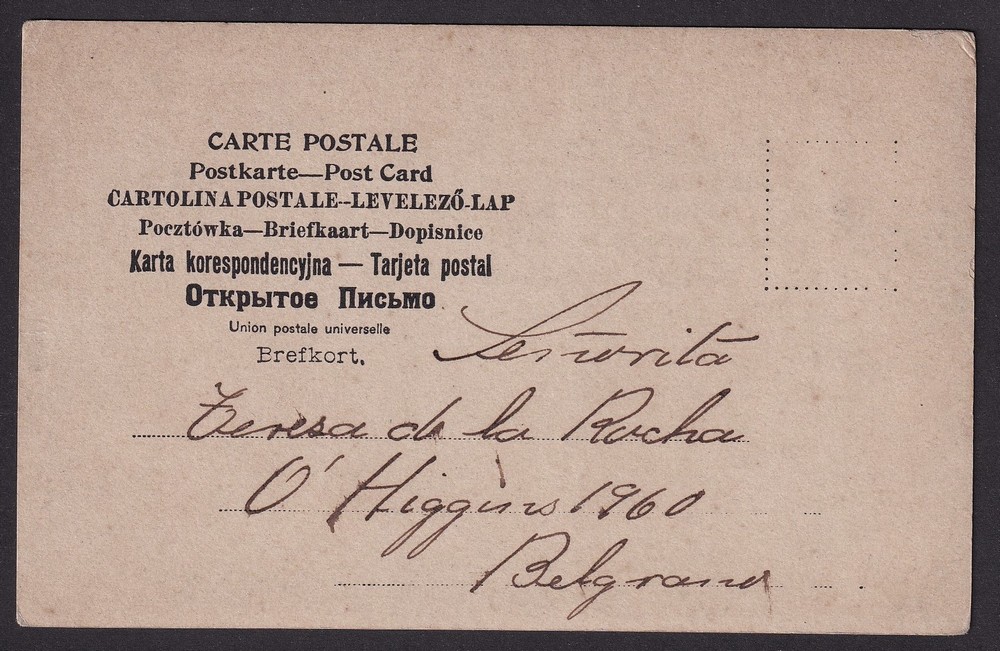 CARTE POSTALE
Postkarte—Post Card
CARTOLINA POSTALE--LEVELEZŐ-LAP
Pocztówka—Briefkaart—Dopisnice
Karta korespondencyjna — Tarjeta postal
Открытое Письмо
Union postale universelle
Brefkort.
Señorita
Teresa de la Rocha
O' Higgins 1960
Belgrano